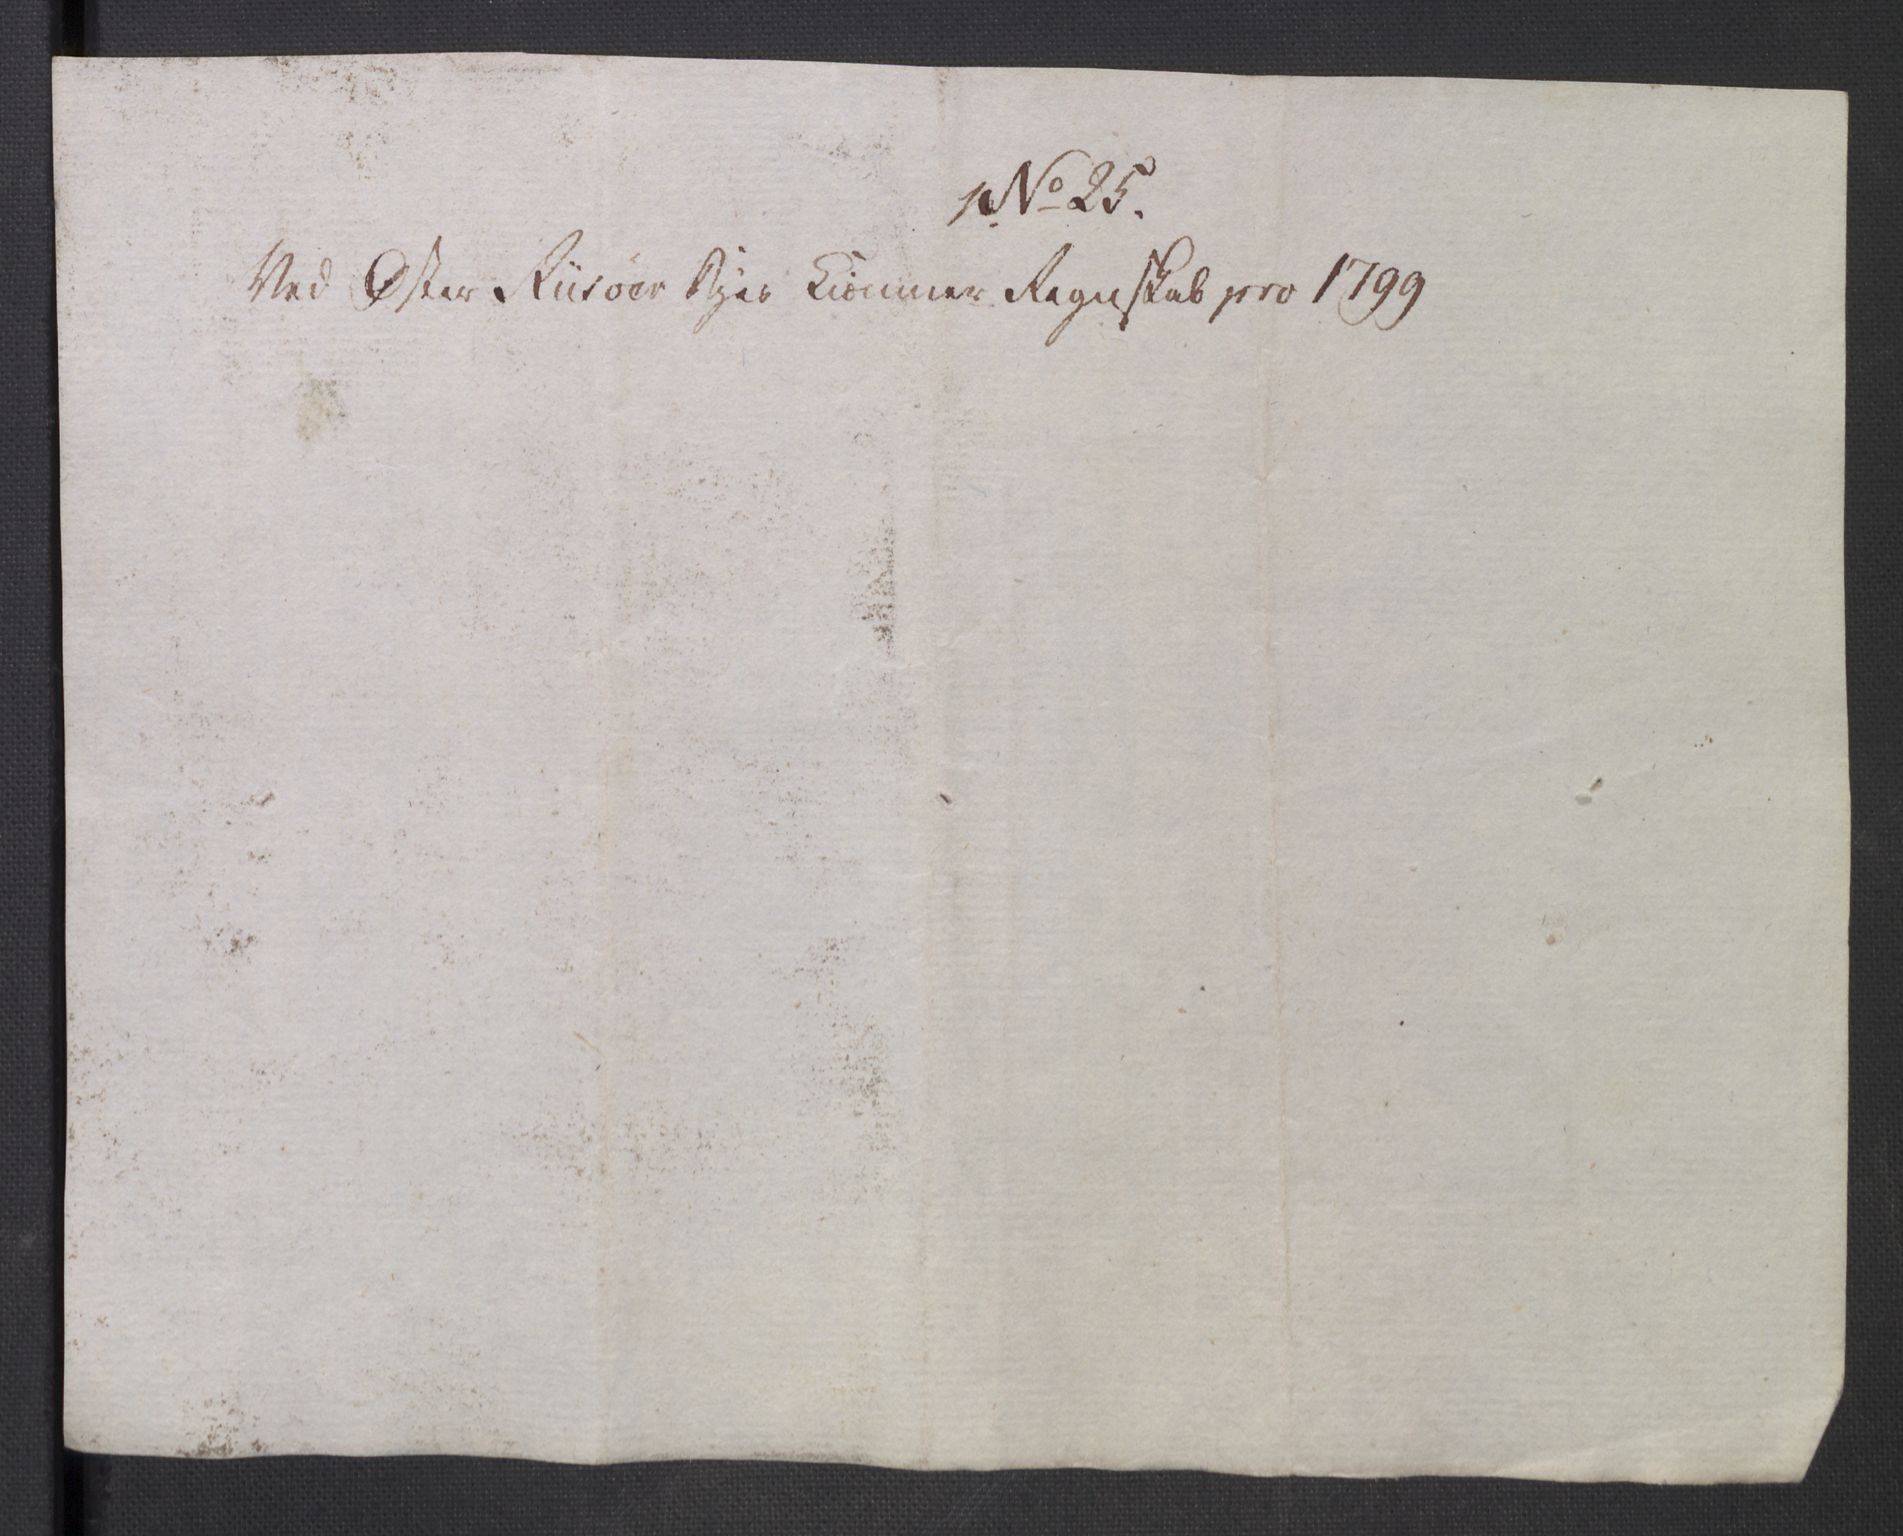 No 25.
Ved Øster Riisöer Byes Kiemner Regnskab pro 1799